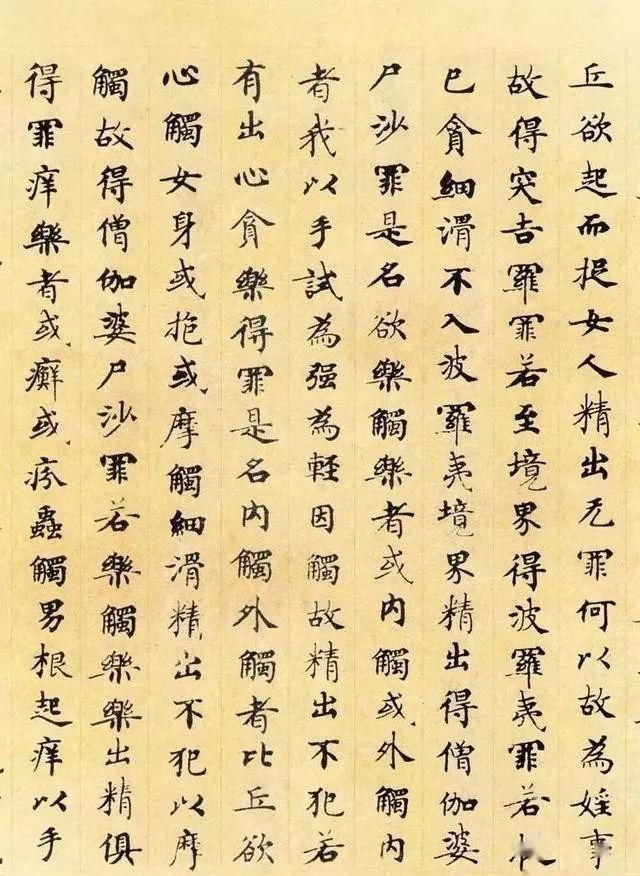 丘欲起而捉女人精出无罪何以故為婬事
故得突吉羅罪若至境界得波羅夷罪若
已貪細滑不入波羅夷境界精出得僧伽婆
尸沙罪是名欲樂觸樂者或內觸或外觸內
者我以手試為强為軽因觸故精出不犯若
有出心貪樂得罪是名內觸外觸者比丘欲
心觸女身或抱或摩觸細滑精出不犯以摩
觸故得僧伽婆尸沙罪若樂觸樂樂出精俱
得罪痒樂者或癬或疥蟲觸男根起痒以手